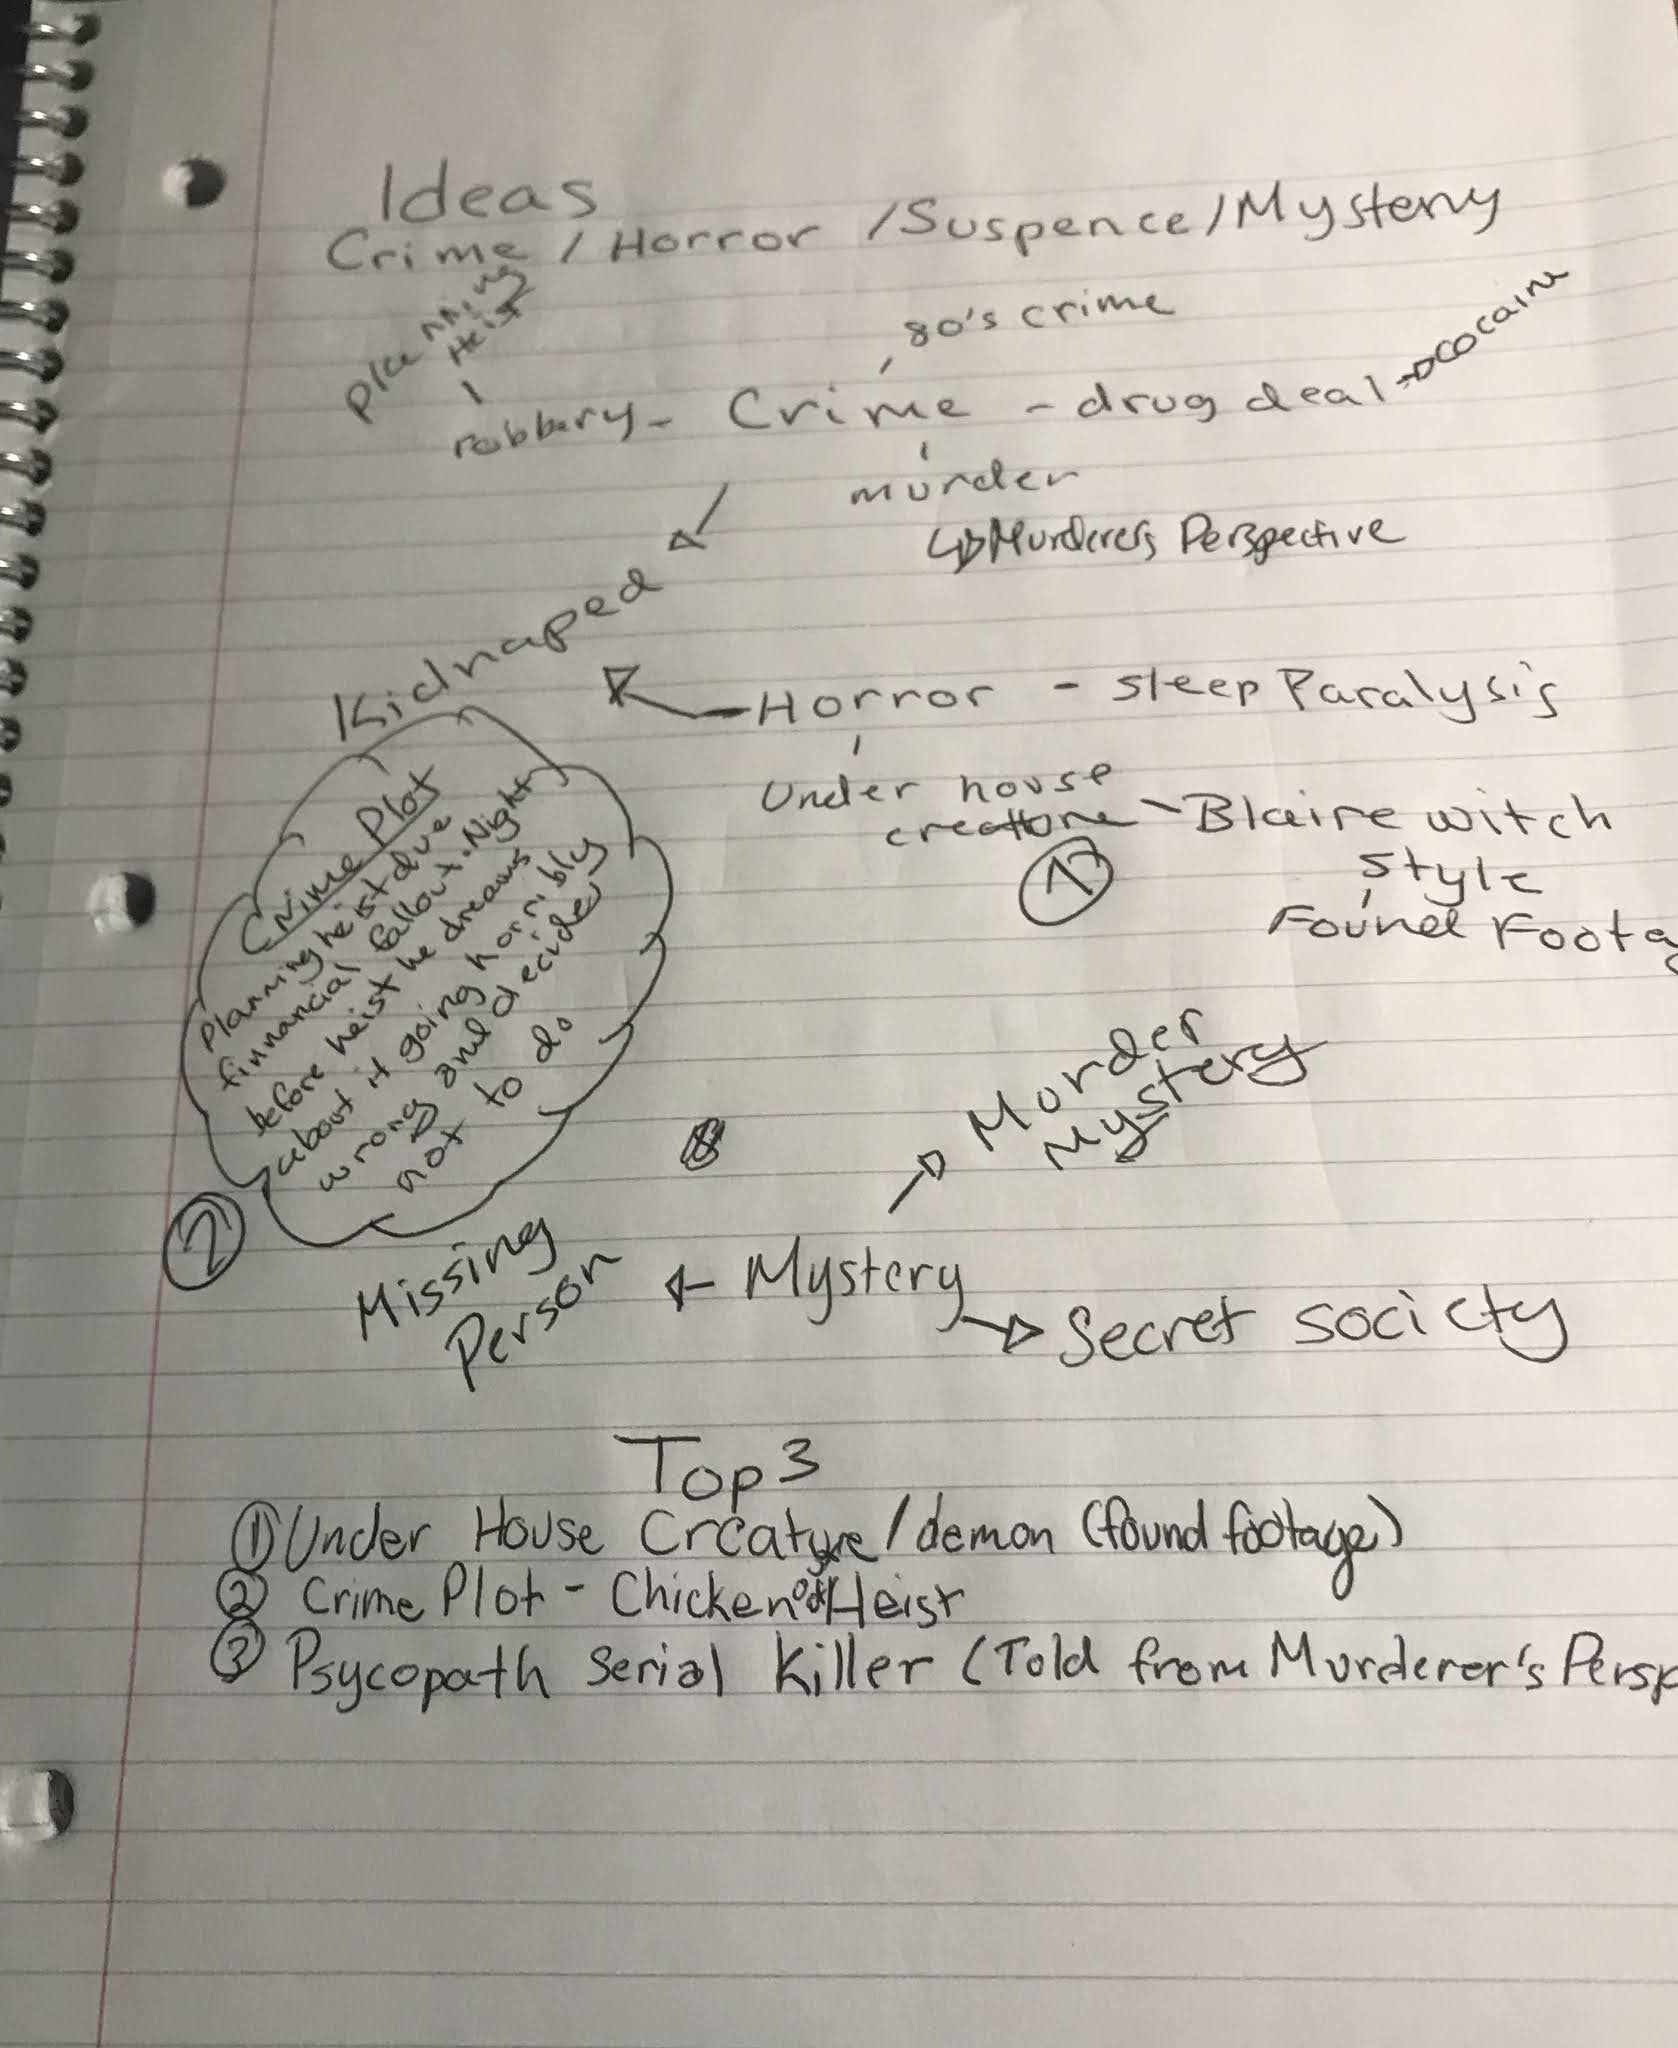 Ideas
Crime / Horror /Suspence/Mystery
planning
Heist
80's crime
robbery - Crime - drug deal → cocaine
murder
↳ Murderers Perspective
Kidnaped
Horror - sleep Paralysis
Under house
creature - Blaire witch
style
Found Foota
1
Crime Plot
planning heist due
finnancial fallout. Night
before heist he dreams
about it going horribly
wrong and decides
not to do
2
Murder
Mystery
Missing
Person
← Mystery
→ Secret society
Top 3
① Under House Creature/demon (found footage)
② Crime Plot - Chicken out Heist
③ Psycopath Serial Killer (Told from Murderer's Persp